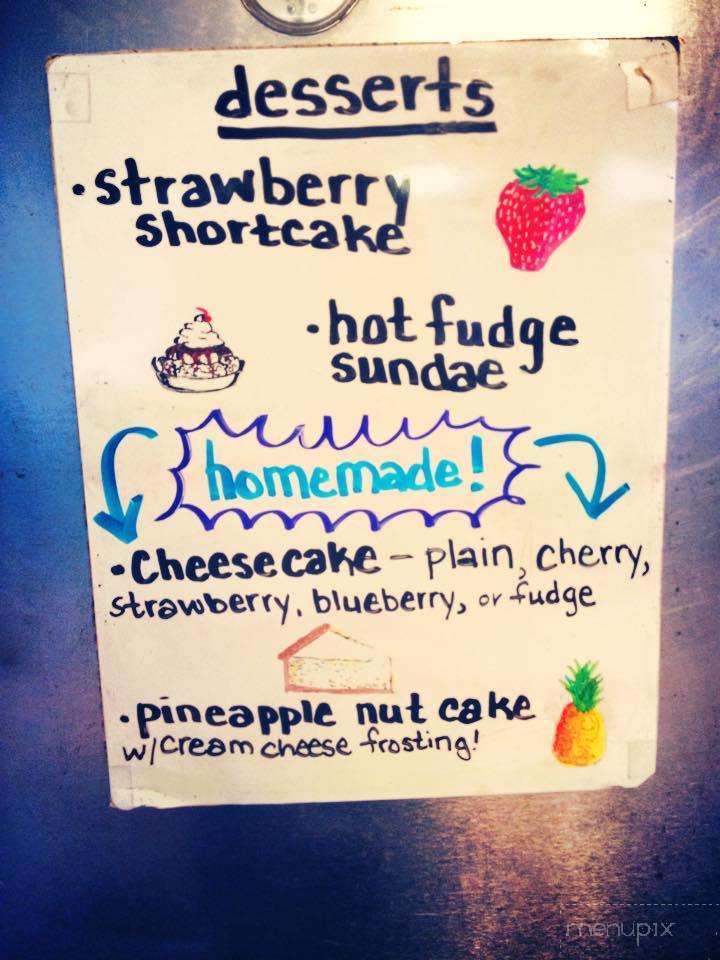 desserts
• strawberry
shortcake
• hot fudge
sundae
homemade!
• Cheesecake - plain, cherry,
strawberry, blueberry, or fudge
• pineapple nut cake
w/cream cheese frosting!
menupix